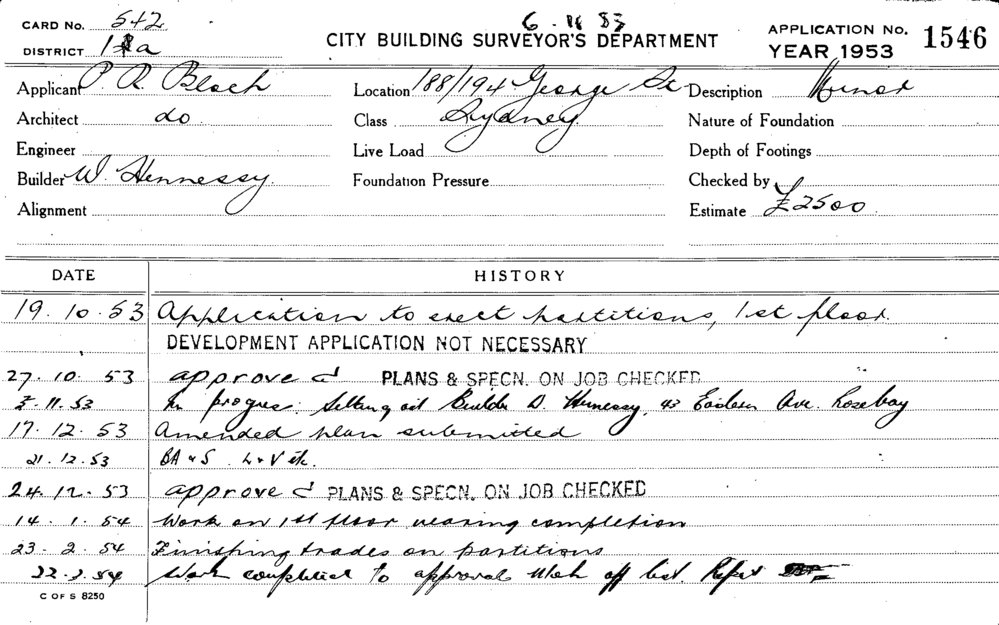 CARD No. 542
6 . 11 53
DISTRICT 11a
CITY BUILDING SURVEYOR'S DEPARTMENT
APPLICATION No. 1546
YEAR 1953
Applicant P. A. Blach Location 188/194 George St Description Minor
Architect do Class Sydney Nature of Foundation
Engineer Live Load Depth of Footings
Builder W. Hennessy Foundation Pressure Checked by
Alignment Estimate £2500
DATE HISTORY
19. 10. 53 Application to erect partitions, 1st floor.
DEVELOPMENT APPLICATION NOT NECESSARY
27. 10. 53 approved PLANS & SPECN. ON JOB CHECKED
11. 53 In progres. Setting out Builder D. Hennessy, 43 Eastern Ave. Rosebay
17. 12. 53 Amended plan submitted
21. 12. 53 BA & S L & V etc.
24. 12. 53 approved PLANS & SPECN. ON JOB CHECKED
14. 1. 54 Work on 1st floor nearing completion
23. 2. 54 Finishing trades on partitions
22. 3. 54 Work completed to approval off
C OF S 8250